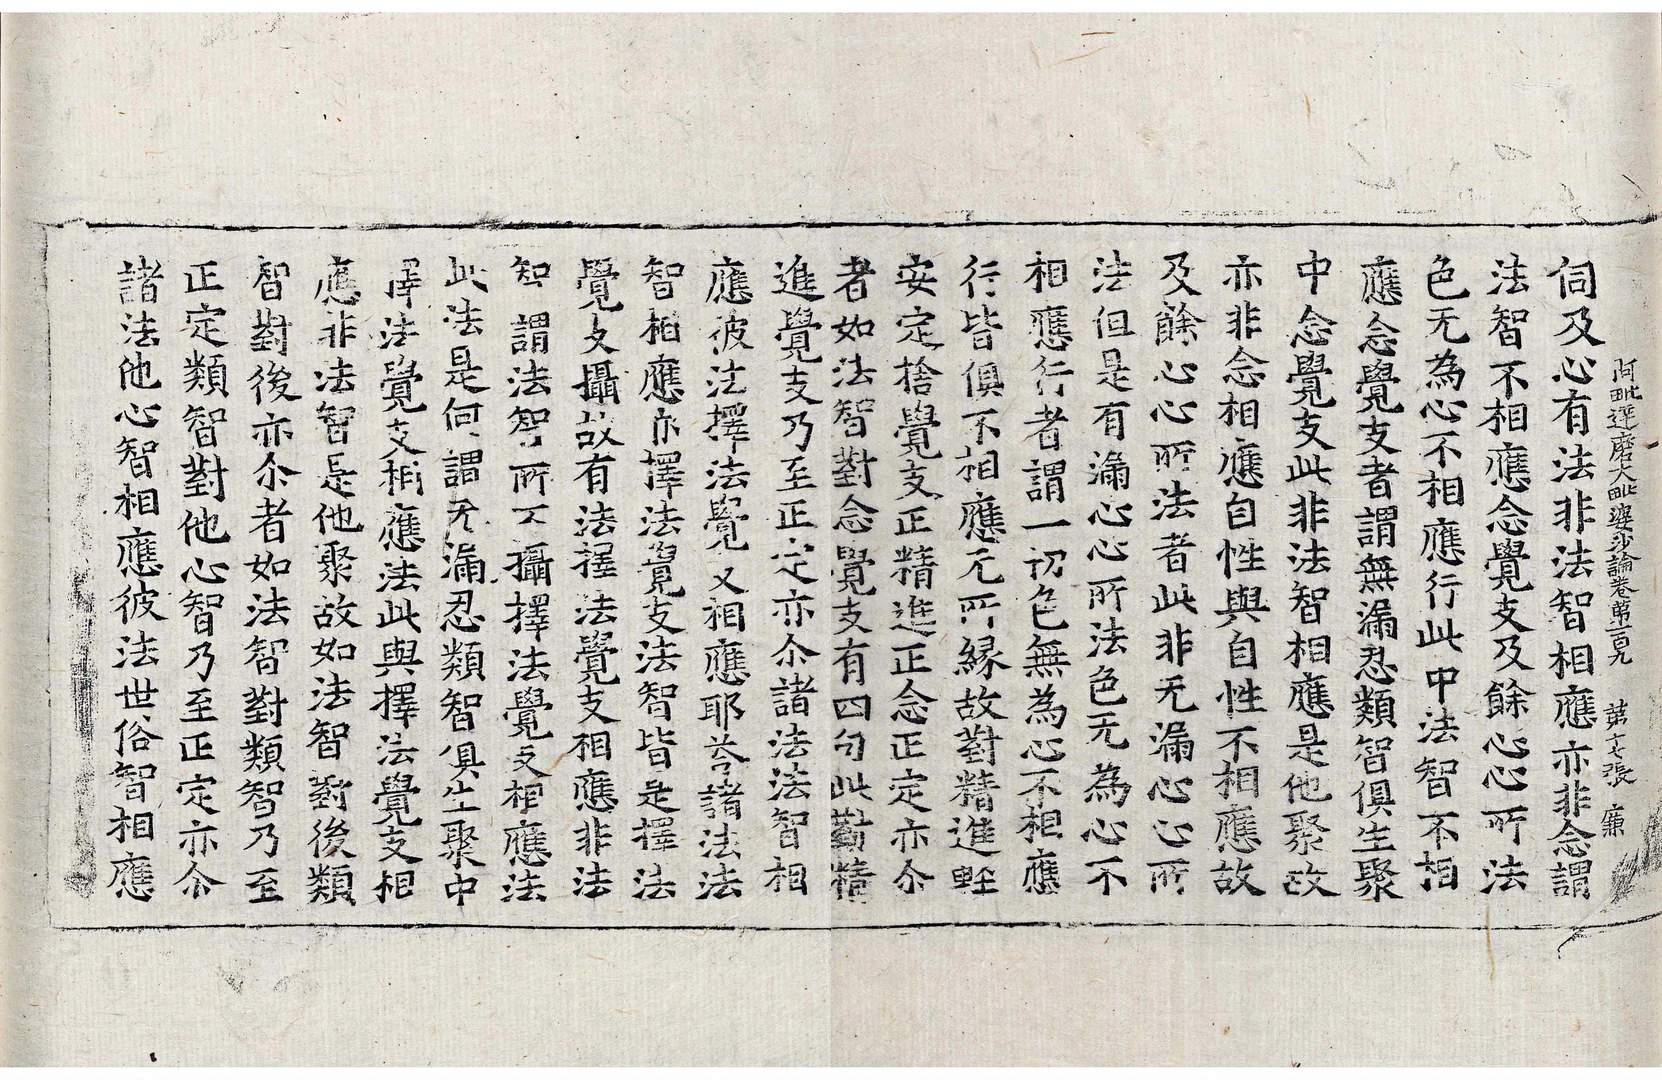 阿毗達磨大毗婆沙論卷第一百九　第十七張　廉
伺及心有法非法智相應亦非念謂
法智不相應念覺支及餘心心所法
色无為心不相應行此中法智不相
應念覺支者謂無漏忍類智俱生聚
中念覺支此非法智相應是他聚故
亦非念相應自性與自性不相應故
及餘心心所法者此非无漏心心所
法但是有漏心心所法色无為心不
相應行者謂一切色無為心不相應
行皆俱不相應无所緣故對精進輕
安定捨覺支正精進正念正定亦尒
者如法智對念覺支有四句此勤精
進覺支乃至正定亦尒諸法法智相
應彼法擇法覺支相應耶荅諸法法
智相應亦擇法覺支法智皆是擇法
覺支攝故有法擇法覺支相應非法
智謂法智所不攝擇法覺支相應法
此法是何謂无漏忍類智俱生聚中
擇法覺支相應法此與擇法覺支相
應非法智是他聚故如法智對後類
智對後亦尒者如法智對類智乃至
正定類智對他心智乃至正定亦尒
諸法他心智相應彼法世俗智相應